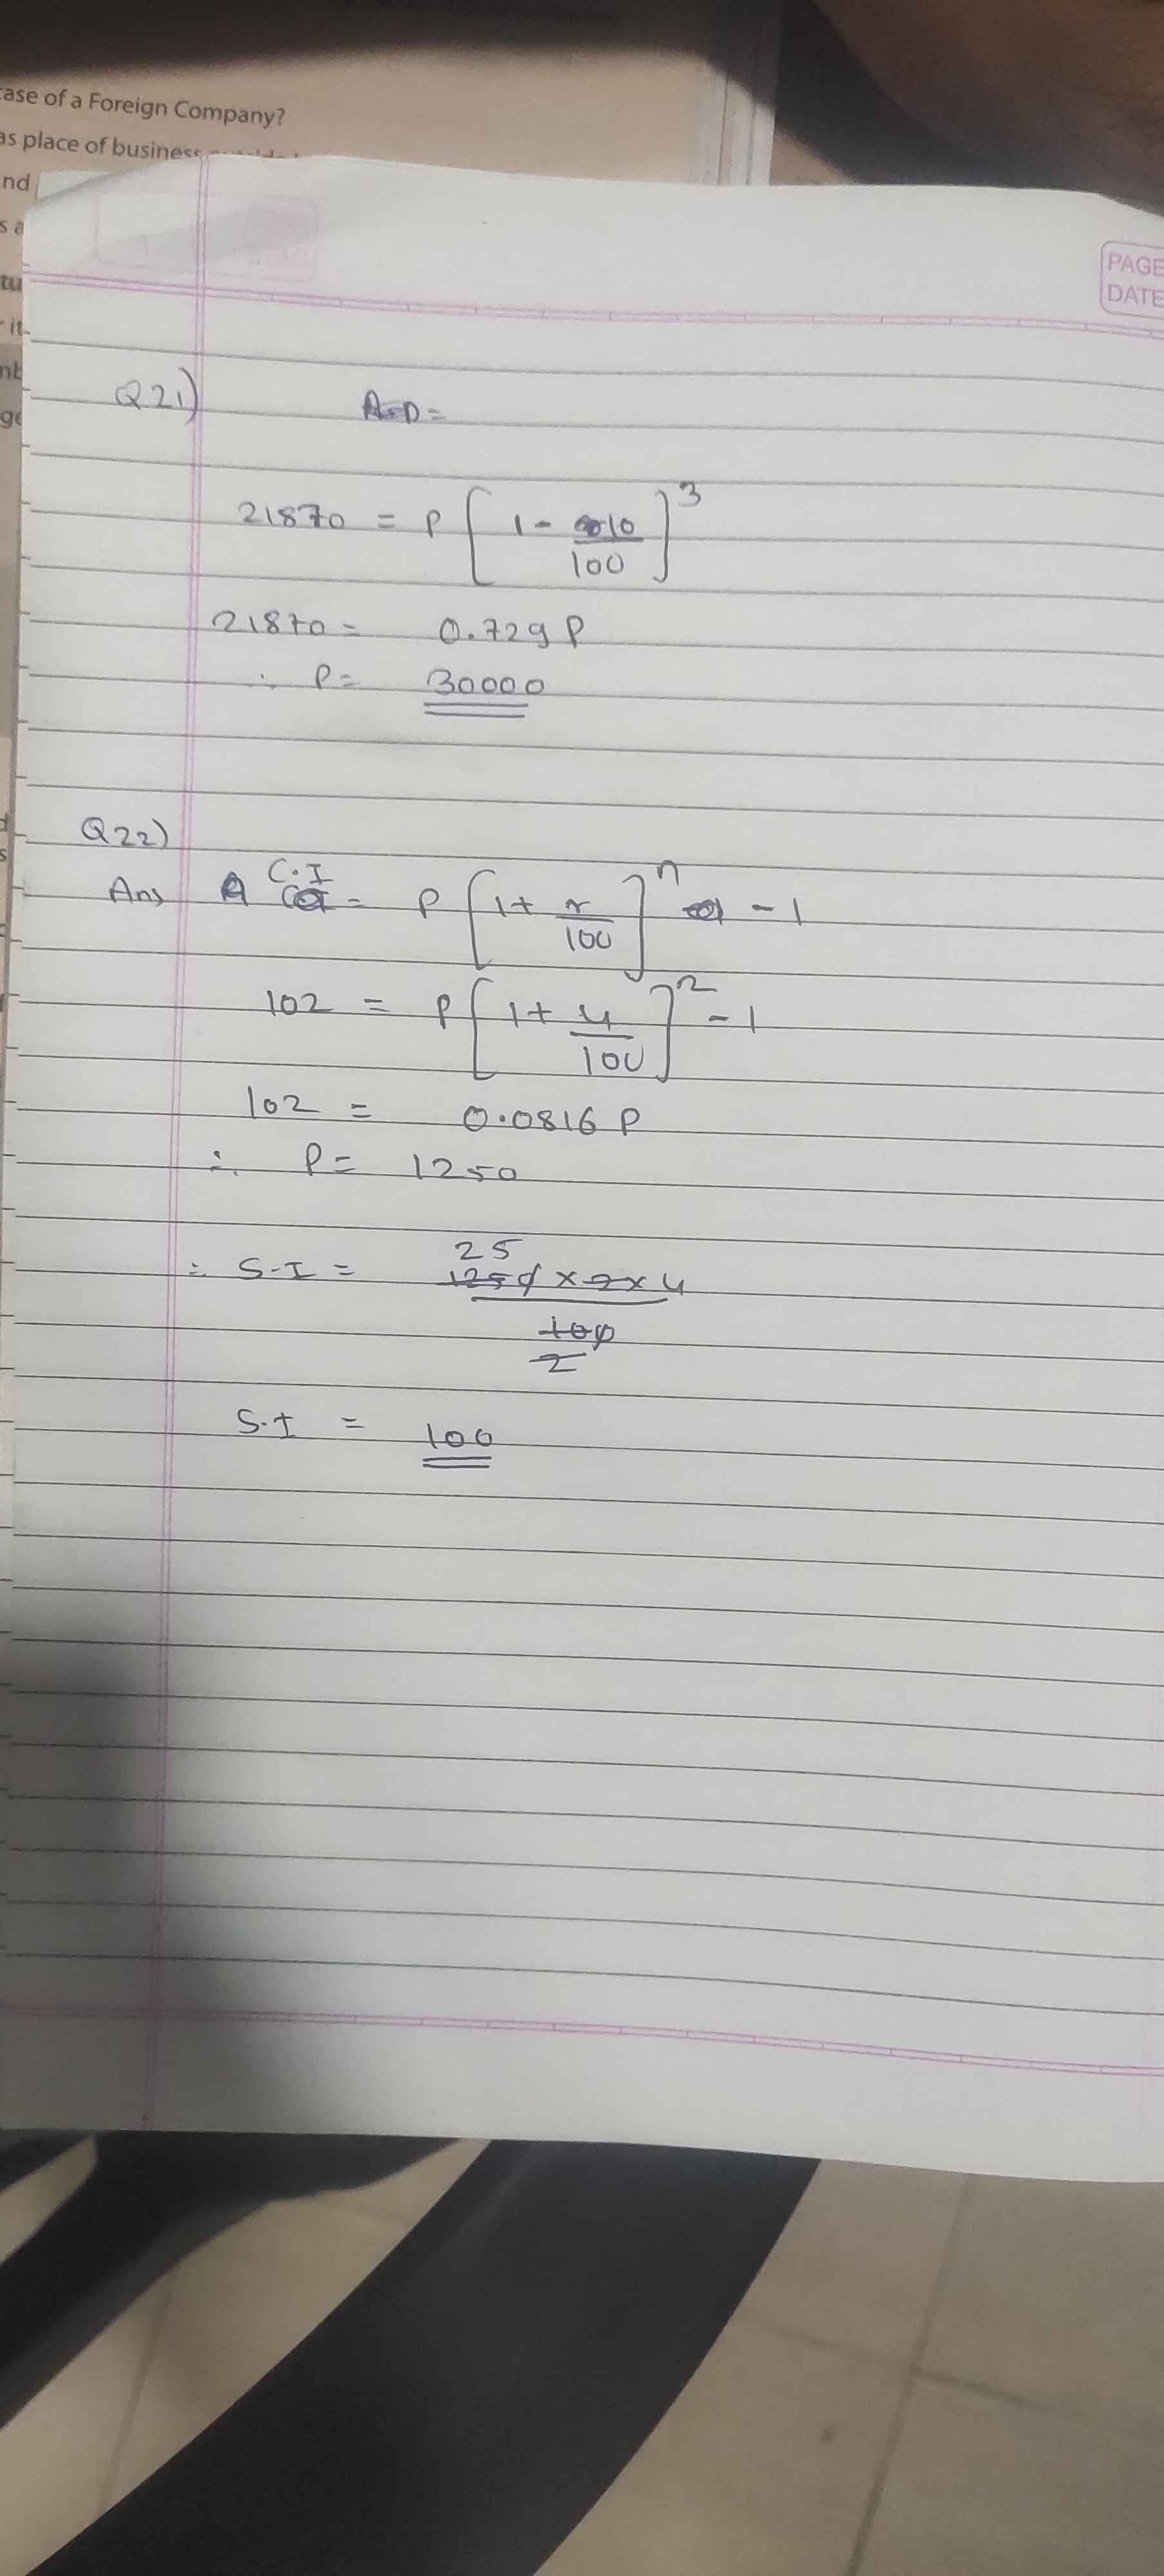 case of a Foreign Company?
as place of business
nd
s a
tu
r it
nb
ge
PAGE
DATE
Q21)
A-P=
21870 = P [1 - 10/100]^3
21870 = 0.729 P
∴ P = 30000
Q22)
Ans C.I = P [1 + r/100]^n - 1
102 = P [1 + 4/100]^2 - 1
102 = 0.0816 P
∴ P = 1250
25
∴ S.I = 1250 × 2 × 4
100
2
S.I = 100